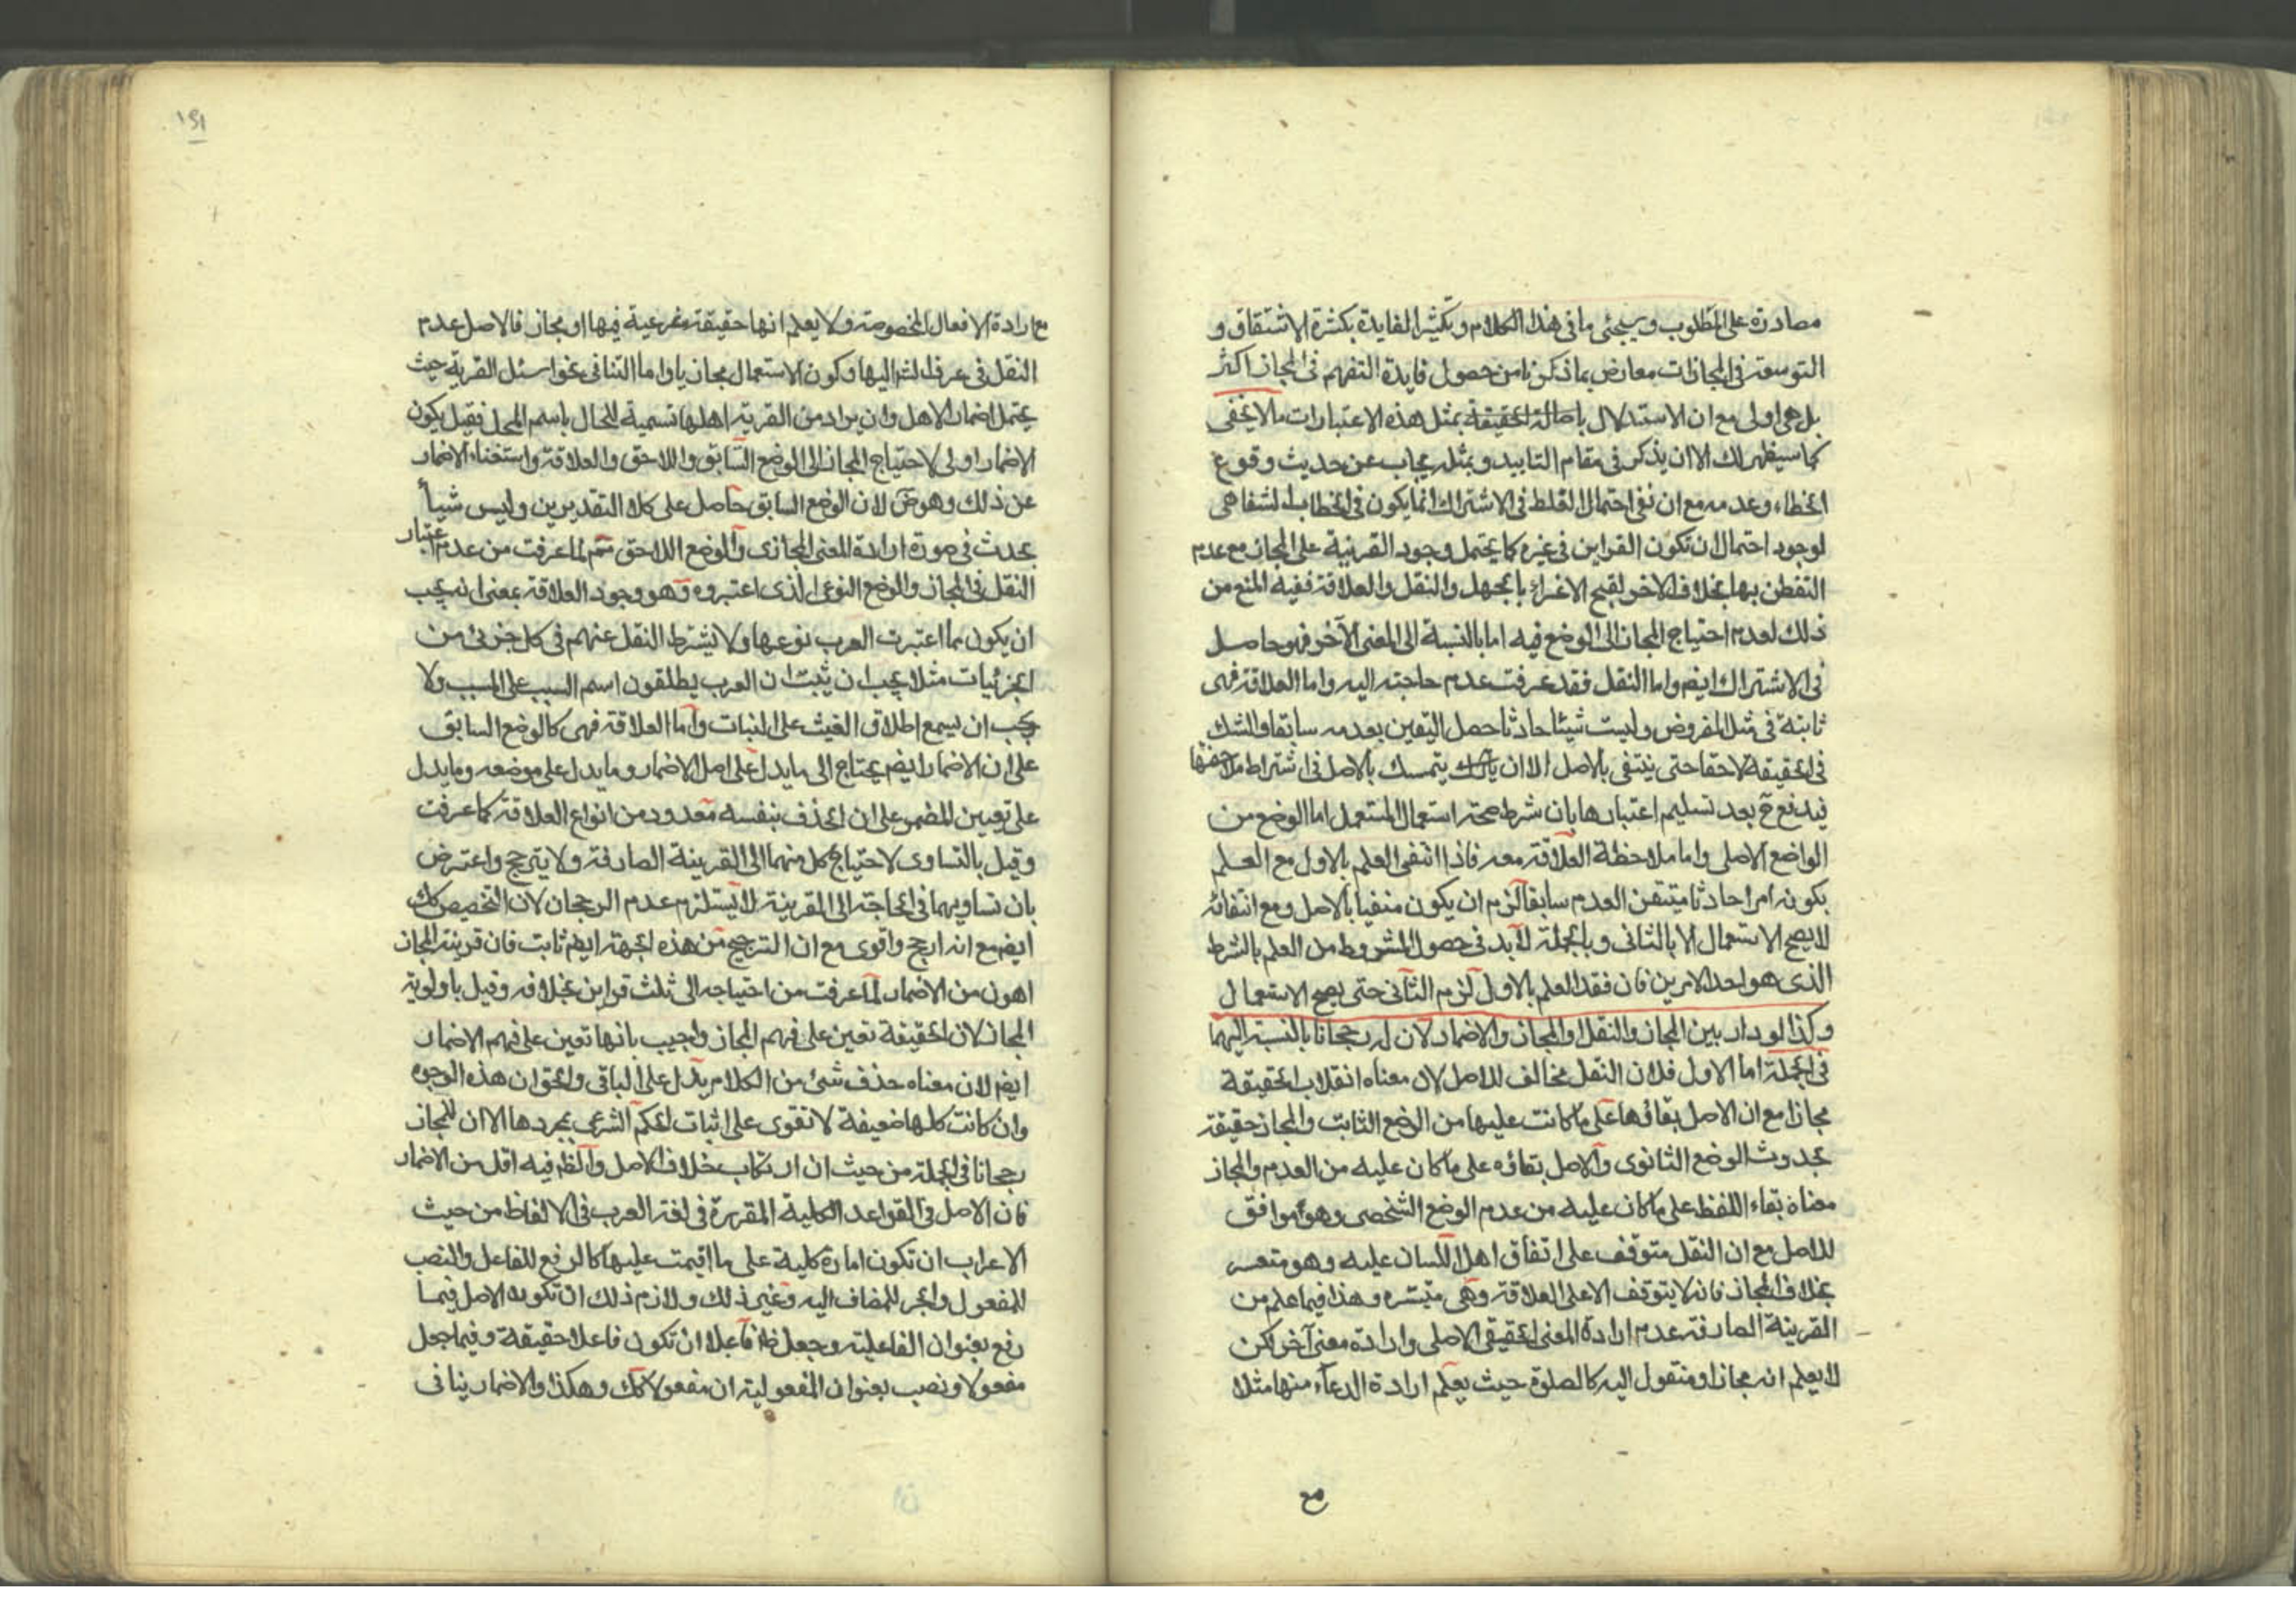 مصادرة على المطلوب وسيجئ ما في هذا الكلام وتكثير الفايدة بكثرة الاشتقاق و
التوسعة في المجازات معارض بما ذكرنا من حصول فايدة التفهم في المجاز اكثر
بل هي اولى مع ان الاستدلال باصالة الحقيقة بمثل هذه الاعتبارات مالا يخفى
كما سيظهر لك الا ان يذكر في مقام التاييد وبمثله يجاب عن حديث وقوع
الخطاء وعدمه مع ان نفي احتمال الغلط في الاشتراك انما يكون في الخطاب الشفاهي
لوجود احتمال ان تكون القراين في غيره كما يحتمل وجود القرينة على المجاز مع عدم
التفطن بها بخلاف الاخر لقبح الاغراء بالجهل والنقل والعلاقة ففيه المنع من
ذلك لعدم احتياج المجاز الى الوضع فيه اما بالنسبة الى المعنى الآخر فهو حاصل
في الاشتراك ايضم واما النقل فقد عرفت عدم حاجته اليه واما العلاقة فهى
ثابتة في مثل المفروض وليست شيئا حادثا حصل اليقين بعدمه سابقا والشك
في الحقيقة لاحقا حتى ينتفى بالاصل الا ان يتمسك بالاصل في اشتراط ملاحظتها
فيدفع ح بعد تسليم اعتبارها بان شرط صحة استعمال المستعمل اما الوضع من
الواضع الاصلى واما ملاحظة العلاقة معه فاذا انتفى العلم بالاول مع العلم
بكونه امرا حادثا متيقن العدم سابقا لزم ان يكون منفيا بالاصل ومع انتفائه
لا يصح الاستعمال الا بالثانى وبالجملة لا بد في حصول المشروط من العلم بالشرط
الذى هو احد الامرين فان فقد العلم بالاول لزم الثانى حتى يصح الاستعمال
وكذا لو دار بين المجاز والنقل او المجاز والاضمار لان له رجحانا بالنسبة اليهما
في الجملة اما الاول فلان النقل مخالف للاصل لان معناه انقلاب الحقيقة
مجازا مع ان الاصل بقائها على ما كانت عليها من الوضع الثابت والمجاز حقيقة
بحدوث الوضع الثانوى والاصل بقاؤه على ما كان عليه من العدم والمجاز
معناه بقاء اللفظ على ما كان عليه من عدم الوضع الشخصى وهو موافق
للاصل مع ان النقل متوقف على اتفاق اهل اللسان عليه وهو متعسر
بخلاف المجاز فانه لا يتوقف الا على العلاقة وهى متيسره وهذا فيما علم من
القرينة الصارفة عدم ارادة المعنى الحقيقى الاصلى وارادة معنى آخر لكن
لا يعلم انه مجاز او منقول اليه كالصلوة حيث يعلم ارادة الدعاء منها مثلا
مع
١٤١
مع ارادة الافعال المخصوصة ولا يعلم انها حقيقة شرعية فيها او مجاز فالاصل عدم
النقل في عرف الشر اليها وكون الاستعمال مجازيا واما الثانى نحو اسئل القرية حيث
يحتمل اضمار الاهل وان يراد من القرية اهلها تسمية للحال باسم المحل فقيل يكون
الاضمار اولى لاحتياج المجاز الى الوضع السابق واللاحق والعلاقة واستغناء الاضمار
عن ذلك وهو ض لان الوضع السابق حاصل على كلا التقديرين وليس شيأ
يحدث في صورة ارادة المعنى المجازى والوضع اللاحق مم لما عرفت من عدم اعتبار
النقل في المجاز والوضع النوعى الذى اعتبروه وهو وجود العلاقة بمعنى انه يجب
ان يكون مما اعتبرت العرب نوعها ولا يشترط النقل عنهم في كل جزئى من
الجزئيات مثلا يجب ان يثبت ان العرب يطلقون اسم السبب على المسبب ولا
يجب ان يسمع اطلاق الغيث على النبات واما العلاقة فهى كالوضع السابق
على ان الاضمار ايضم يحتاج الى ما يدل على اصل الاضمار وما يدل على موضعه وما يدل
على تعيين المضمر على ان الحذف بنفسه معدود من انواع العلاقة كما عرفت
وقيل بالتساوى لاحتياج كل منهما الى القرينة الصارفة ولا يترجح واعترض
بان تساويهما في الحاجة الى القرينة لا يستلزم عدم الرجحان لان التخصيص كك
ايضم مع انه ارجح واقوى مع ان الترجيح من هذه الجهة ايضم ثابت فان قرينة المجاز
اهون من الاضمار لما عرفت من احتياجه الى ثلث قراين بخلافه وقيل باولوية
المجاز لان الحقيقة تعين على فهم المجاز واجيب بانها تعين على فهم الاضمار
ايضم لان معناه حذف شئ من الكلام يدل على الباقى والحق ان هذه الوجوه
وان كانت كلها ضعيفة لا تقوى على اثبات الحكم الشرعى بمجردها الا ان للمجاز
رجحانا في الجملة من حيث ان ارتكاب خلاف الاصل والظم فيه اقل من الاضمار
فان الاصل في القواعد الكلية المقررة في لغة العرب في الالفاظ من حيث
الاعراب ان تكون امارة كلية على ما اقيمت عليها كالرفع للفاعل والنصب
للمفعول والجر للمضاف اليه وغير ذلك ولازم ذلك ان تكون الاصل فيما
رفع بعنوان الفاعلية وجعل فاعلا ان تكون فاعلا حقيقة وفيما جعل
مفعولا ونصب بعنوان المفعولية ان مفعولا كك وهكذا والاضمار ينافى